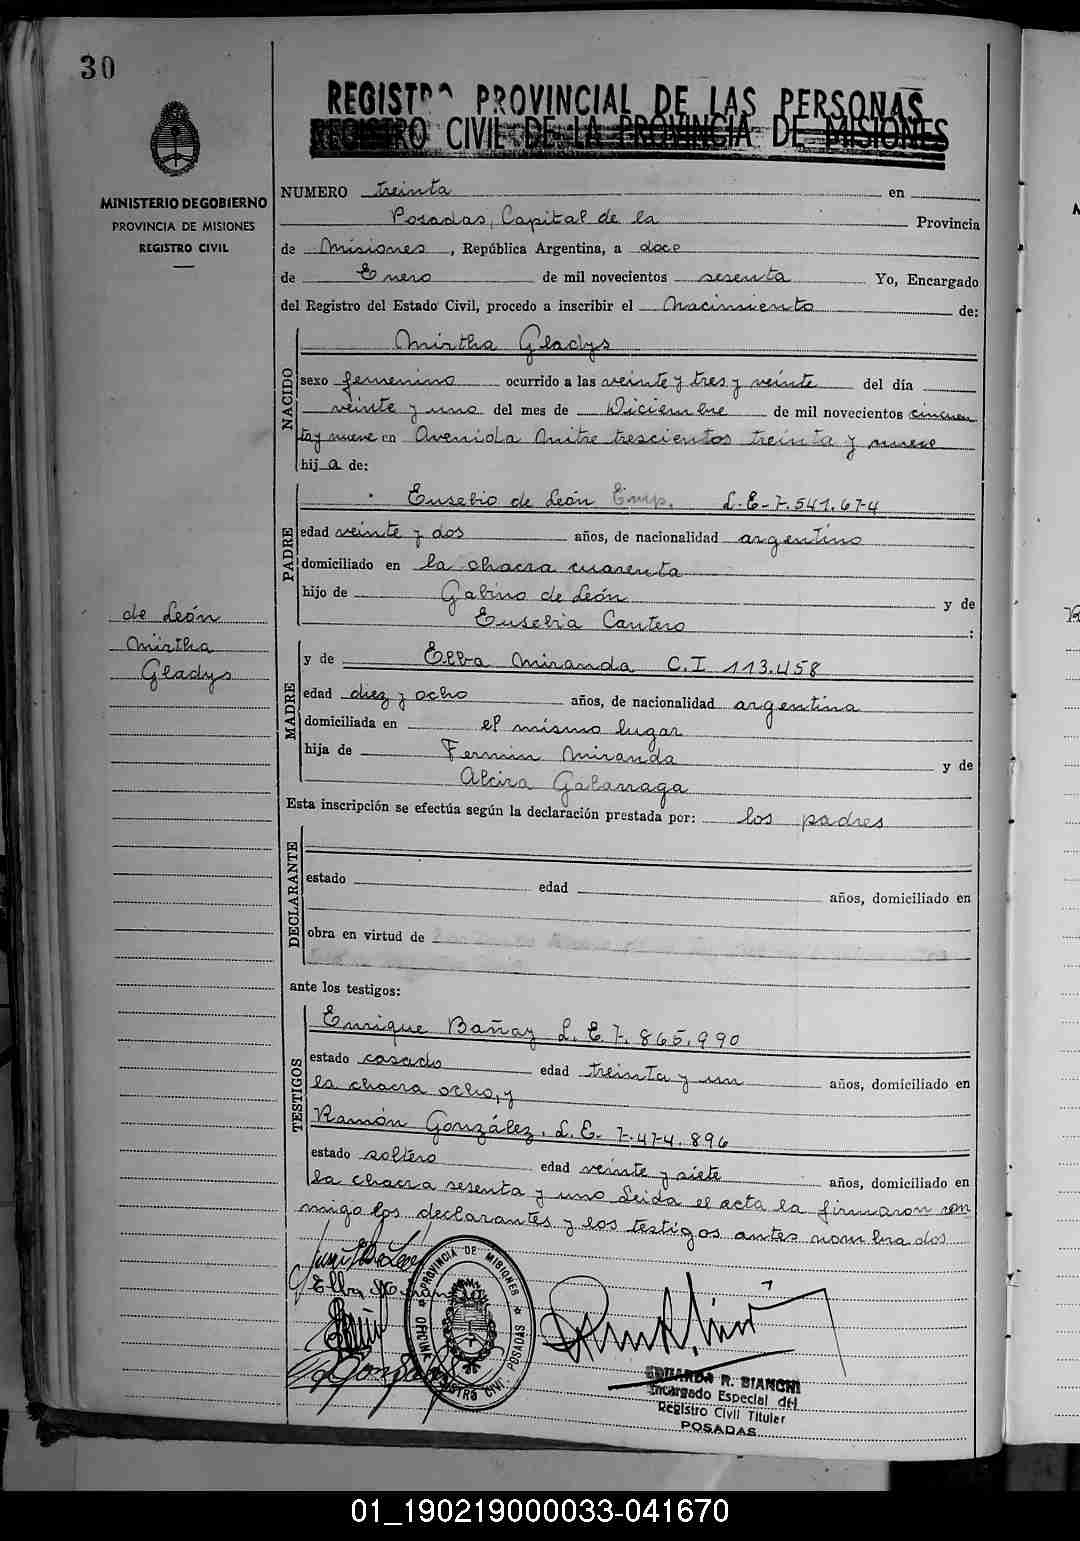 30
REGISTRO PROVINCIAL DE LAS PERSONAS
REGISTRO CIVIL DE LA PROVINCIA DE MISIONES
MINISTERIO DE GOBIERNO
PROVINCIA DE MISIONES
REGISTRO CIVIL
NUMERO treinta en
Posadas, Capital de la Provincia
de Misiones, República Argentina, a doce
de Enero de mil novecientos sesenta Yo, Encargado
del Registro del Estado Civil, procedo a inscribir el Nacimiento de:
NACIDO
Mirtha Gladys
sexo femenino ocurrido a las veinte y tres y veinte del día
veinte y uno del mes de Diciembre de mil novecientos cincuen
ta y nueve en Avenida Mitre trescientos treinta y nueve
hija de:
PADRE
Eusebio de León Emp. L.E-7.541.674
edad veinte y dos años, de nacionalidad argentino
domiciliado en la chacra cuarenta
hijo de Gabino de León y de
Eusebia Cantero :
de León
Mirtha
Gladys
MADRE
y de Elba Miranda C.I 113.458
edad diez y ocho años, de nacionalidad argentina
domiciliada en el mismo lugar
hija de Fermin Miranda y de
Alcira Galarraga
Esta inscripción se efectúa según la declaración prestada por: los padres
DECLARANTE
estado edad años, domiciliado en
obra en virtud de
ante los testigos:
TESTIGOS
Enrique Bañay L.E.7.865.990
estado casado edad treinta y un años, domiciliado en
la chacra ocho, y
Ramón González. L.E. 7.474.896
estado soltero edad veinte y siete años, domiciliado en
la chacra sesenta y uno Leida el acta la firmaron con
migo los declarantes y los testigos antes nombrados
Elba Miranda
R González
PROVINCIA DE MISIONES
OFICINA REGISTRO CIVIL POSADAS
EDUARDA R. BIANCHI
Encargado Especial del
Registro Civil Titular
POSADAS
01_190219000033-041670